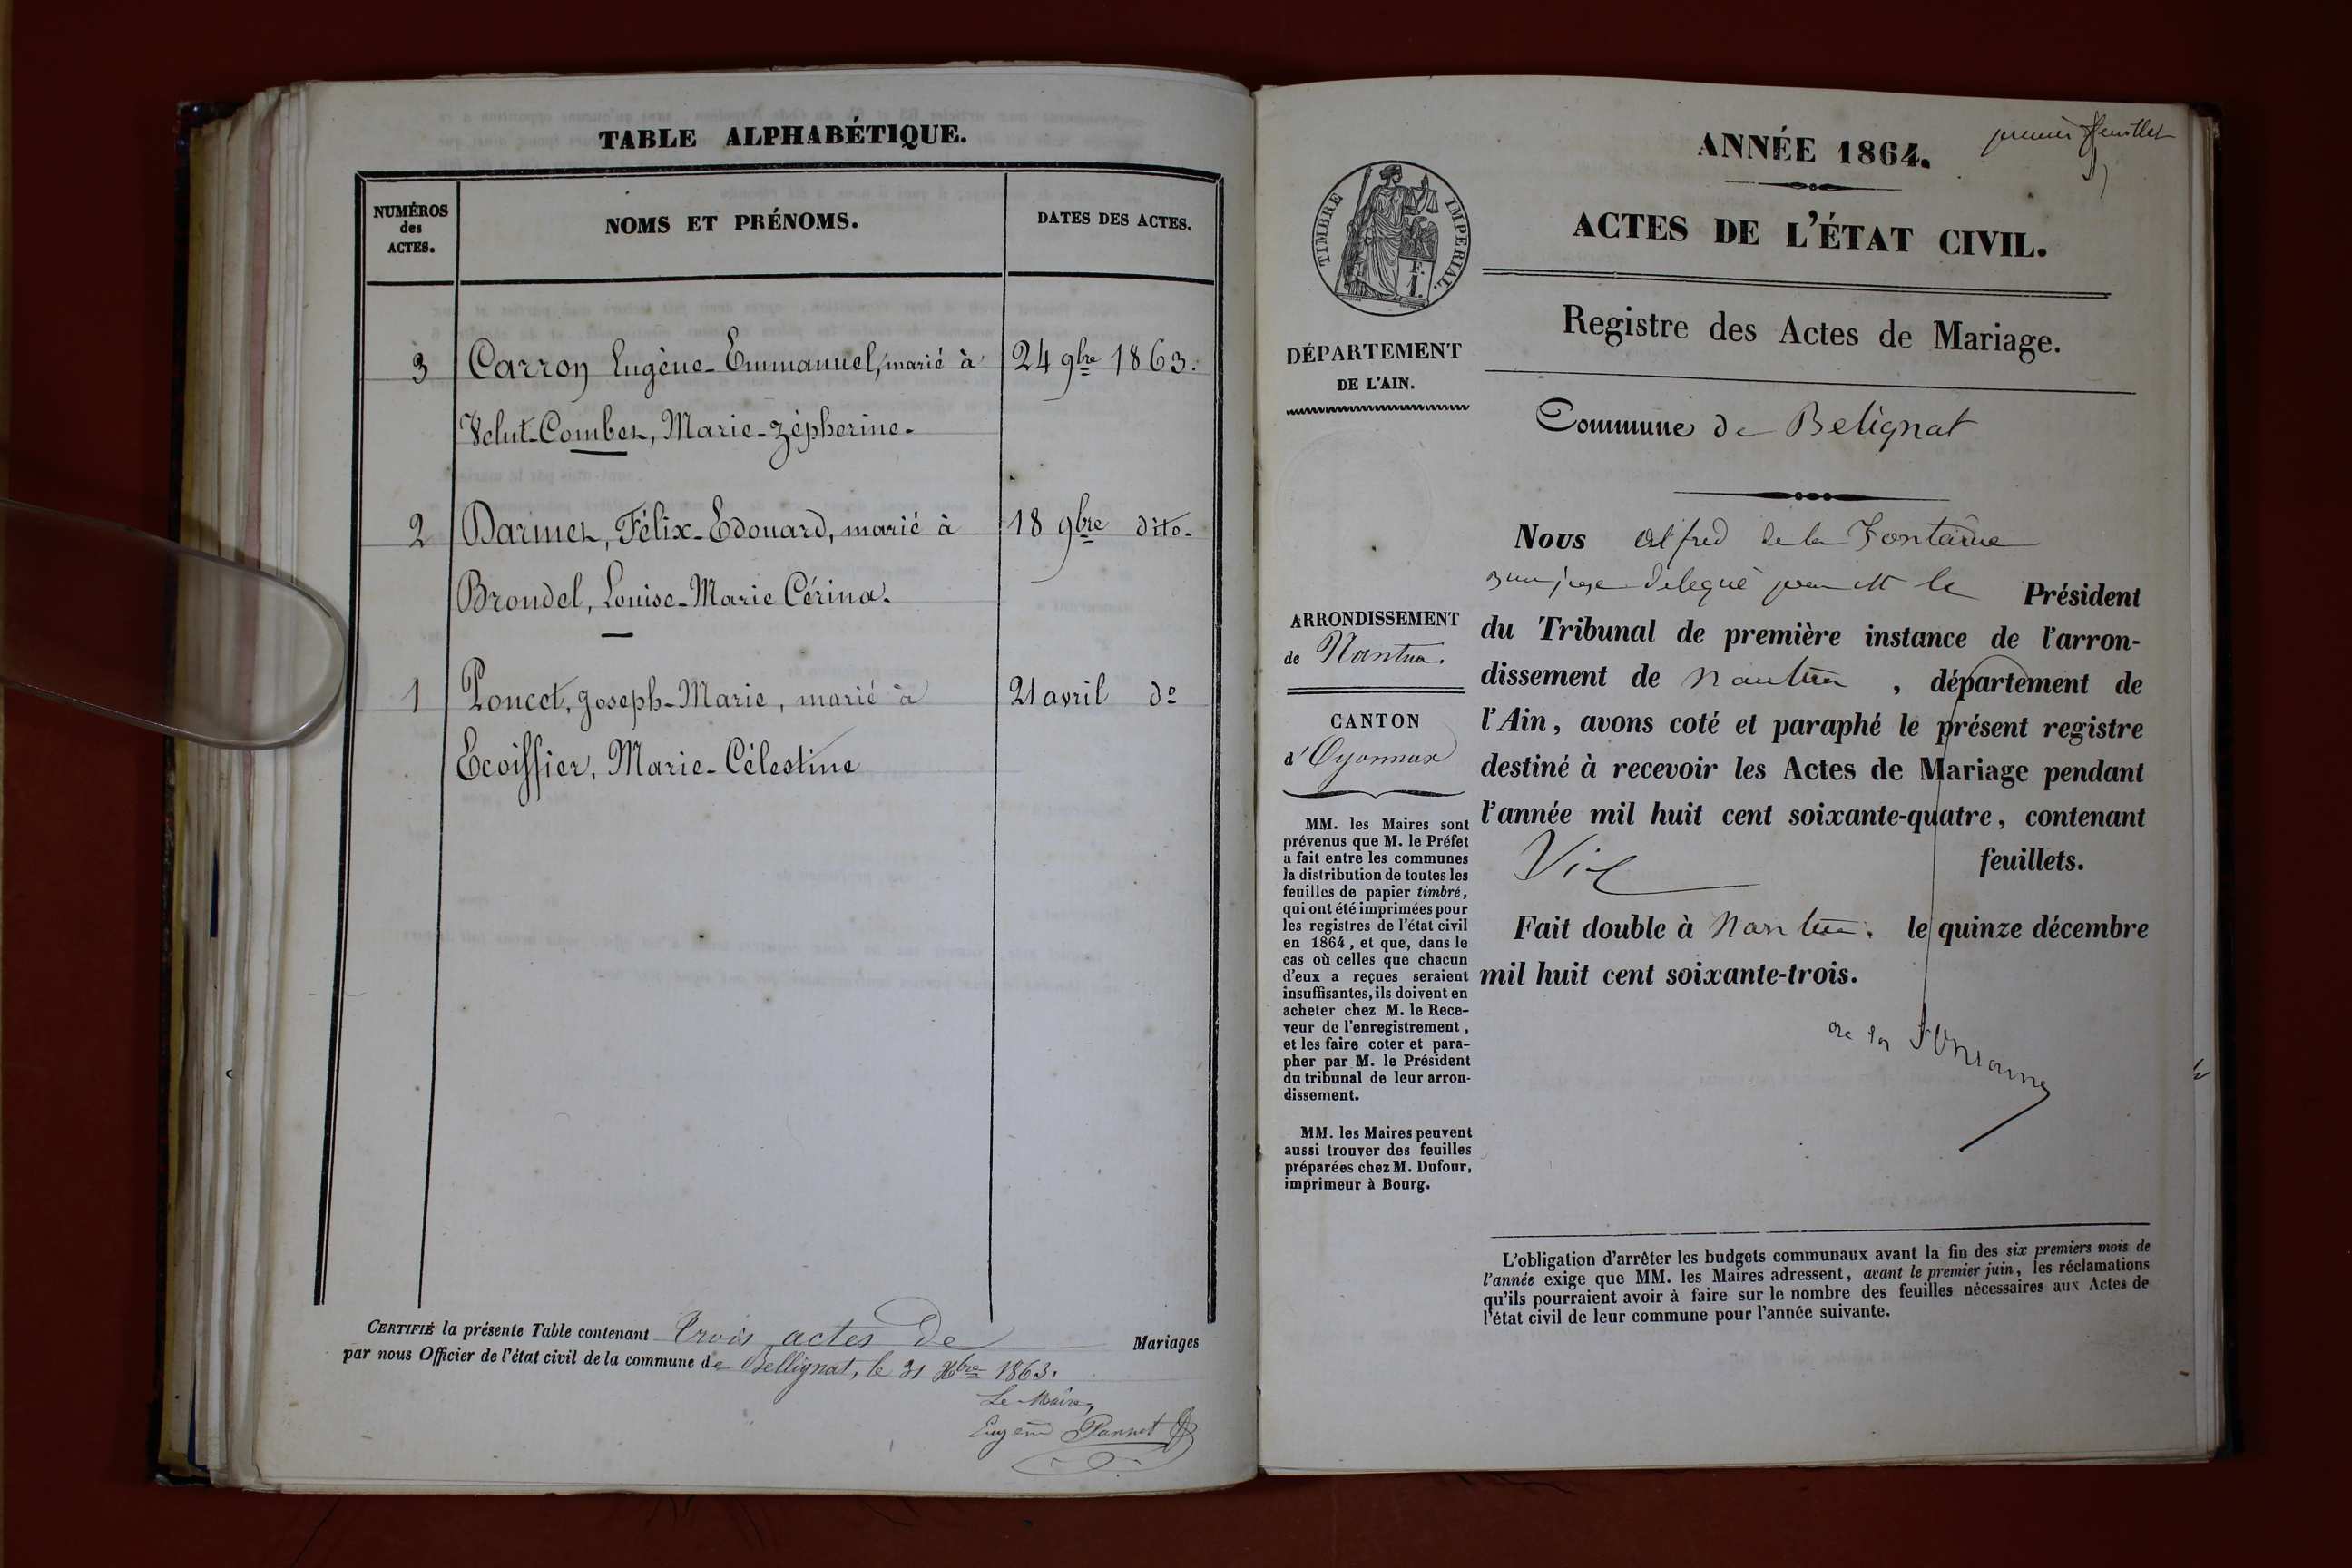 TABLE ALPHABÉTIQUE.
NUMÉROS
des
ACTES.
NOMS ET PRÉNOMS.
DATES DES ACTES.
3 Carron Eugène-Emmanuel, marié à 24 9bre 1863.
Velut-Combet, Marie-zépherine.
2 Darmet, Félix-Edouard, marié à 18 9bre dito.
Brondel, Louise-Marie Cérina.
1 Poncet, Joseph-Marie, marié à 21 avril do
Ecoiffier, Marie-Célestine
CERTIFIÉ la présente Table contenant trois actes de Mariages
par nous Officier de l'état civil de la commune de Bellignat, le 31 Xbre 1863.
Le Maire,
Eugène
premier feuillet
ANNÉE 1864.
ACTES DE L'ÉTAT CIVIL.
Registre des Actes de Mariage.
TIMBRE IMPERIAL.
F.
1.
DÉPARTEMENT
DE L'AIN.
ARRONDISSEMENT
de Nantua.
CANTON
d'Oyonnax
MM. les Maires sont
prévenus que M. le Préfet
a fait entre les communes
la distribution de toutes les
feuilles de papier timbré,
qui ont été imprimées pour
les registres de l'état civil
en 1864, et que, dans le
cas où celles que chacun
d'eux a reçues seraient
insuffisantes, ils doivent en
acheter chez M. le Rece-
veur de l'enregistrement,
et les faire coter et para-
pher par M. le Président
du tribunal de leur arron-
dissement.
MM. les Maires peuvent
aussi trouver des feuilles
préparées chez M. Dufour,
imprimeur à Bourg.
Commune de Belignat
Nous Alfred de la Fontaine
juge délégué le Président
du Tribunal de première instance de l'arron-
dissement de Nantua, département de
l'Ain, avons coté et paraphé le présent registre
destiné à recevoir les Actes de Mariage pendant
l'année mil huit cent soixante-quatre, contenant
feuillets.
Fait double à Nantua. le quinze décembre
mil huit cent soixante-trois.
de la Fontaine
L'obligation d'arrêter les budgets communaux avant la fin des six premiers mois de
l'année exige que MM. les Maires adressent, avant le premier juin, les réclamations
qu'ils pourraient avoir à faire sur le nombre des feuilles nécessaires aux Actes de
l'état civil de leur commune pour l'année suivante.